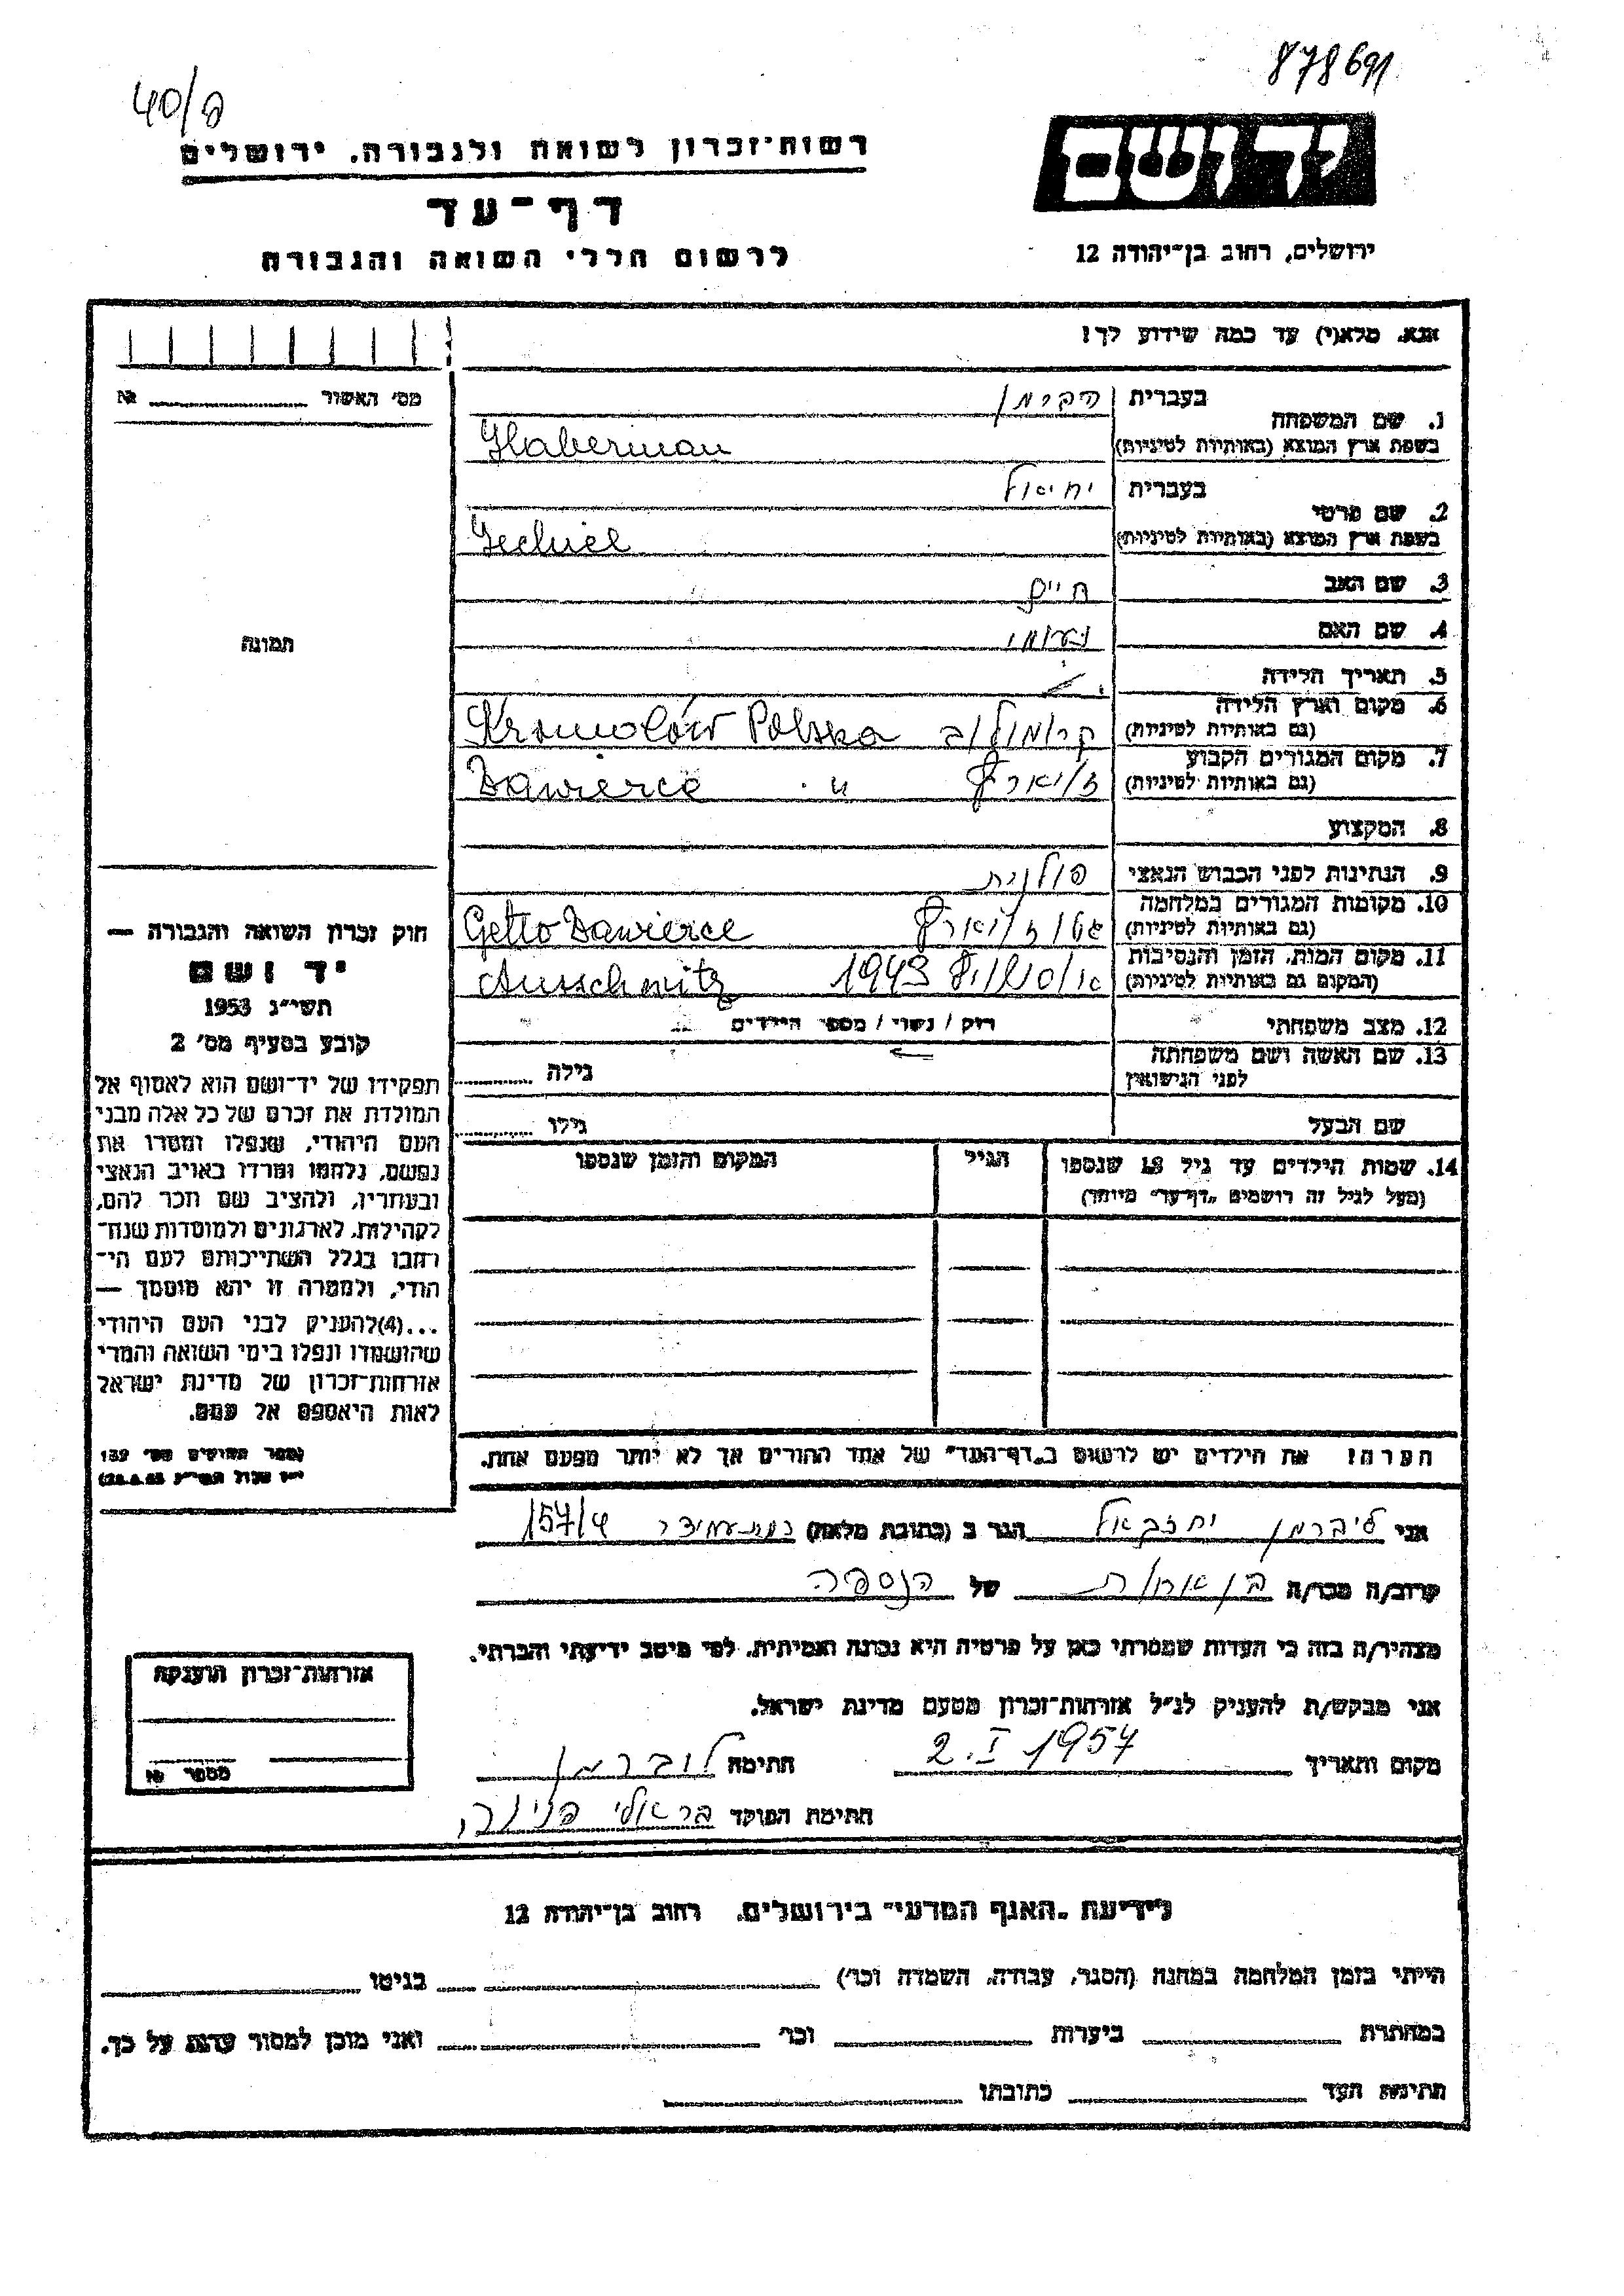 878691
40/ה
יד ושם
רשות־זכרון לשואה ולגבורה. ירושלים
דף־עד
לרשום חללי השואה והגבורה
ירושלים, רחוב בן־יהודה 12
אנא. מלא(י) עד כמה שידוע לך!
מס׳ האשור № 
תמונה
1. שם המשפחה בעברית הברמן
בשפת ארץ המוצא (באותיות לטיניות) Haberman
2. שם פרטי בעברית יחיאל
בשפת ארץ המוצא (באותיות לטיניות) Jechiel
3. שם האב חיים
4. שם האם נעומי
5. תאריך הלידה
6. מקום וארץ הלידה קרומולוב Kromolów Polska
(גם באותיות לטיניות)
7. מקום המגורים הקבוע
(גם באותיות לטיניות) Zawierce "
8. המקצוע
9. הנתינות לפני הכבוש הנאצי פולנית
10. מקומות המגורים במלחמה
(גם באותיות לטיניות) Getto Zawierce
11. מקום המות. הזמן והנסיבות
(המקום גם באותיות לטיניות) 1943 Ausschwitz
12. מצב משפחתי רוק / נשוי / מספר הילדים
13. שם האשה ושם משפחתה
לפני הנישואין גילה
שם הבעל גילו
14. שמות הילדים עד גיל 18 שנספו הגיל המקום והזמן שנספו
(מעל לגיל זה רושמים "דף־עד" מיוחד)
הערה! את הילדים יש לרשום ב„דף־העד" של אחד ההורים אך לא יותר מפעם אחת.
חוק זכרון השואה והגבורה —
יד ושם
תשי״ג 1953
קובע בסעיף מס׳ 2
תפקידו של יד־ושם הוא לאסוף אל
המולדת את זכרם של כל אלה מבני
העם היהודי, שנפלו ומסרו את
נפשם, נלחמו ומרדו באויב הנאצי
ובעוזריו, ולהציב שם וזכר להם,
לקהילות, לארגונים ולמוסדות שנח־
רבו בגלל השתייכותם לעם הי־
הודי, ולמטרה זו יהא מוסמך —
...(4)להעניק לבני העם היהודי
שהושמדו ונפלו בימי השואה והמרי
אזרחות־זכרון של מדינת ישראל
לאות היאספם אל עמם.
(ספר החוקים מס׳ 132
אני ליברמן יחזקאל הגר ב (כתובת מלאה)
קרוב/ה מכר/ה בן אחות של הנספה
מצהיר/ה בזה כי העדות שמסרתי כאן על פרטיה היא נכונה ואמיתית. לפי מיטב ידיעתי והכרתי.
אני מבקש/ת להעניק לנ״ל אזרחות־זכרון מטעם מדינת ישראל.
מקום ותאריך 2.I 1957 חתימה ליברמן
חתימת הפוקד
אזרחות־זכרון הוענקה
מספר №
לידיעת „האגף המדעי" בירושלים. רחוב בן־יהודה 12
הייתי בזמן המלחמה במחנה (הסגר, עבודה, השמדה וכו׳) בגיטו
במחתרת ביערות וכו׳ ואני מוכן למסור עדות על כך.
חתימת העד כתובתו